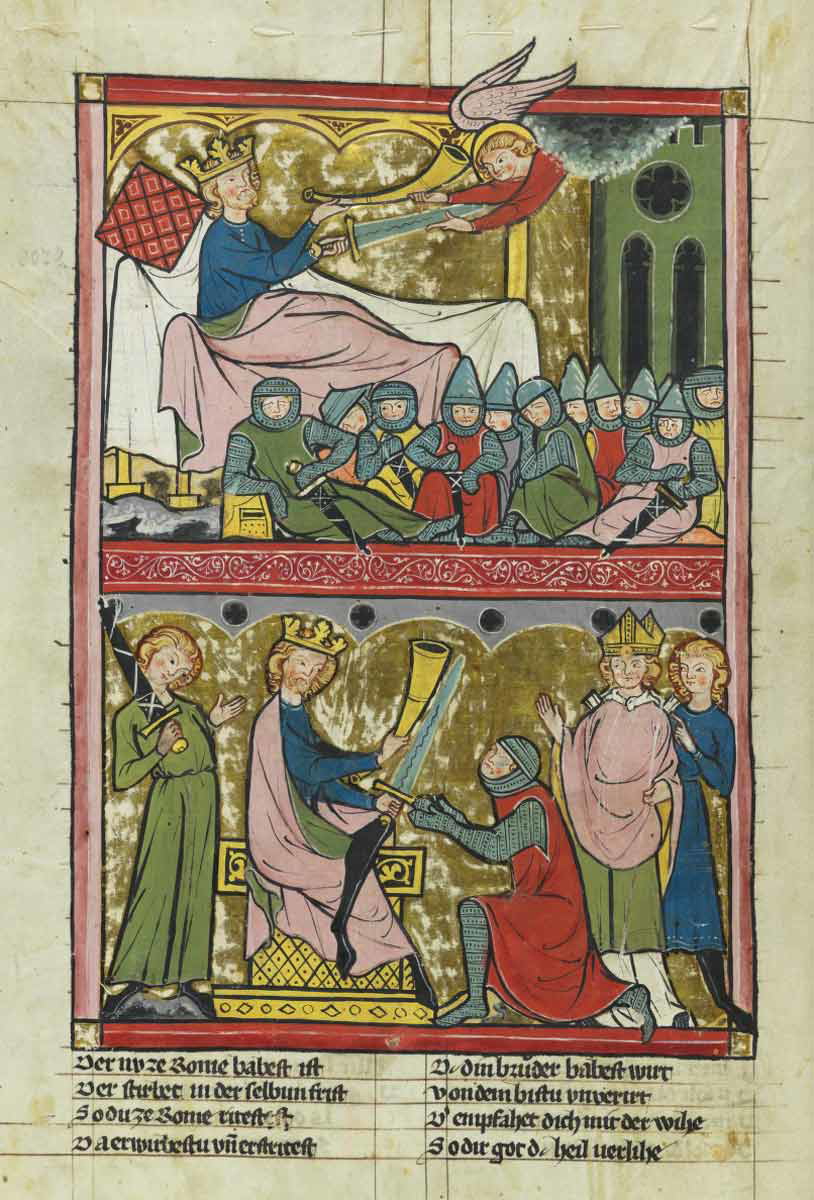 Der nv ze Rome babest ist
Der stirbet in der selbun frist
So du ze Rome ritest
Da erwirbestu vn̄ erstritest
din brůder babest wirt
von dem bistu vnverirt
empfahet dich mit der wihe
So dir got dc heil verlihe